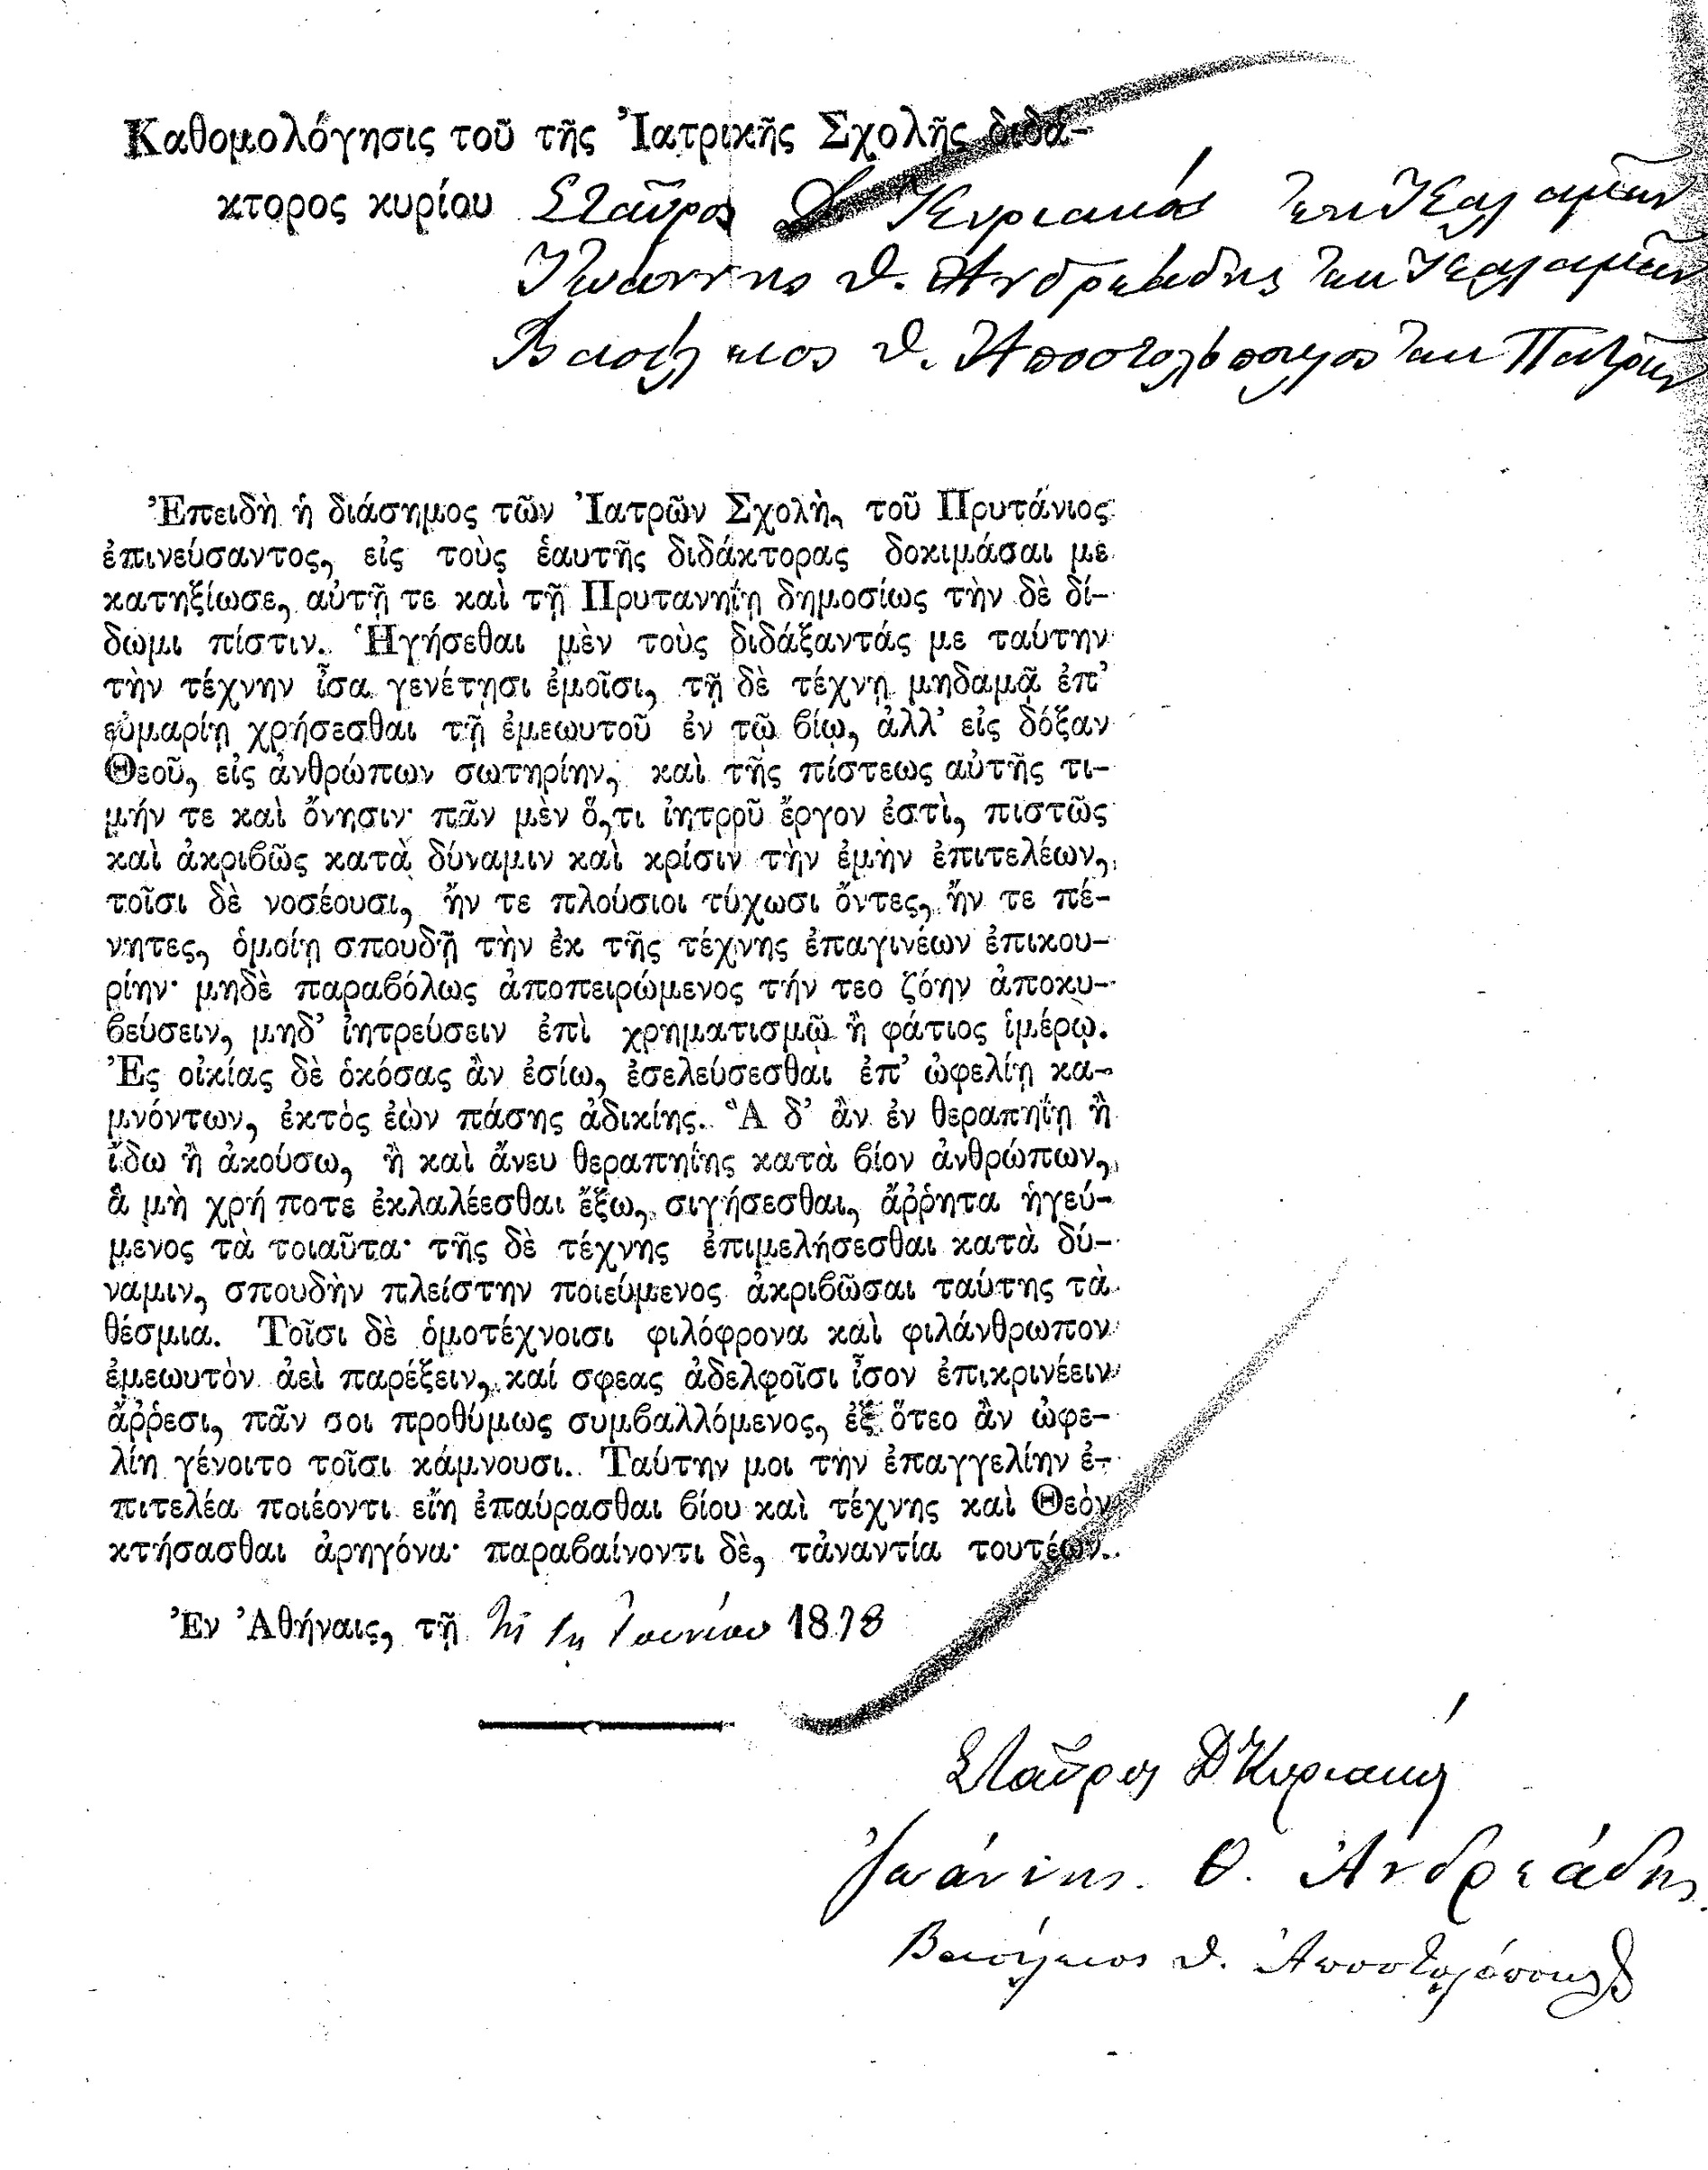 Καθομολόγησις τοῦ τῆς Ἰατρικῆς Σχολῆς διδά-
κτορος κυρίου Σταῦρος Δ Κυριακός ἐκ Καλαμῶν
Ἰωάννης Θ. Ἀνδρεάδης ἐκ Καλαμῶν
Βασίλειος Θ. Ἀποστολόπουλος ἐκ Πατρῶν
Ἐπειδὴ ἡ διάσημος τῶν Ἰατρῶν Σχολὴ, τοῦ Πρυτάνιος
ἐπινεύσαντος, εἰς τοὺς ἑαυτῆς διδάκτορας δοκιμάσαι με
κατηξίωσε, αὐτῇ τε καὶ τῇ Πρυτανηΐῃ δημοσίως τὴν δὲ δί-
δωμι πίστιν. Ἡγήσεθαι μὲν τοὺς διδάξαντάς με ταύτην
τὴν τέχνην ἶσα γενέτῃσι ἐμοῖσι, τῇ δὲ τέχνῃ μηδαμᾷ ἐπ’
εὐμαρίῃ χρήσεσθαι τῇ ἐμεωυτοῦ ἐν τῷ βίῳ, ἀλλ’ εἰς δόξαν
Θεοῦ, εἰς ἀνθρώπων σωτηρίην, καὶ τῆς πίστεως αὐτῆς τι-
μήν τε καὶ ὄνησιν· πᾶν μὲν ὅ,τι ἰητροῦ ἔργον ἐστὶ, πιστῶς
καὶ ἀκριβῶς κατὰ δύναμιν καὶ κρίσιν τὴν ἐμὴν ἐπιτελέων,
τοῖσι δὲ νοσέουσι, ἤν τε πλούσιοι τύχωσι ὄντες, ἤν τε πέ-
νητες, ὁμοίῃ σπουδῇ τὴν ἐκ τῆς τέχνης ἐπαγινέων ἐπικου-
ρίην· μηδὲ παραβόλως ἀποπειρώμενος τήν τεο ζόην ἀποκυ-
βεύσειν, μηδ’ ἰητρεύσειν ἐπὶ χρηματισμῷ ἢ φάτιος ἱμέρῳ.
Ἐς οἰκίας δὲ ὁκόσας ἂν ἐσίω, ἐσελεύσεσθαι ἐπ’ ὠφελίῃ κα-
μνόντων, ἐκτὸς ἐὼν πάσης ἀδικίης. Ἃ δ’ ἂν ἐν θεραπηΐῃ ἢ
ἴδω ἢ ἀκούσω, ἢ καὶ ἄνευ θεραπηΐης κατὰ βίον ἀνθρώπων,
ἃ μὴ χρή ποτε ἐκλαλέεσθαι ἔξω, σιγήσεσθαι, ἄῤῥητα ἡγεύ-
μενος τὰ τοιαῦτα· τῆς δὲ τέχνης ἐπιμελήσεσθαι κατὰ δύ-
ναμιν, σπουδὴν πλείστην ποιεύμενος ἀκριβῶσαι ταύτης τὰ
θέσμια. Τοῖσι δὲ ὁμοτέχνοισι φιλόφρονα καὶ φιλάνθρωπον
ἐμεωυτὸν ἀεὶ παρέξειν, καί σφεας ἀδελφοῖσι ἶσον ἐπικρινέειν
ἄῤῥεσι, πᾶν σοι προθύμως συμβαλλόμενος, ἐξ ὅτεο ἂν ὠφε-
λίη γένοιτο τοῖσι κάμνουσι. Ταύτην μοι τὴν ἐπαγγελίην ἐ-
πιτελέα ποιέοντι εἴη ἐπαύρασθαι βίου καὶ τέχνης καὶ Θεὸν
κτήσασθαι ἀρηγόνα· παραβαίνοντι δὲ, τἀναντία τουτέων.
Ἐν Ἀθήναις, τῇ Ἰουνίου 1878
Σταῦρος Δ Κυριακός
Ἰωάννης. Θ. Ἀνδρεάδης
Βασίλειος Θ. Ἀποστολόπουλος